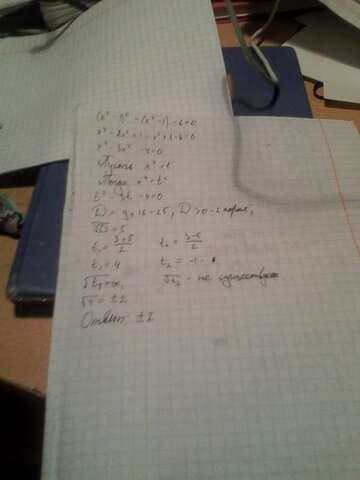 (x² - 1)² - (x² - 1) - 6 = 0
x⁴ - 2x² + 1 - x² + 1 - 6 = 0
x⁴ - 3x² - 4 = 0
Пусть x² = t
Тогда x⁴ = t²
t² - 3t - 4 = 0
D = 9 + 16 = 25, D > 0 - 2 корня,
√D = 5
t₁ = 3+5/2 t₂ = 3-5/2
t₁ = 4 t₂ = -1
√t₁ = x, √t₂ - не существует
√4 = ±2
Ответ: ±2